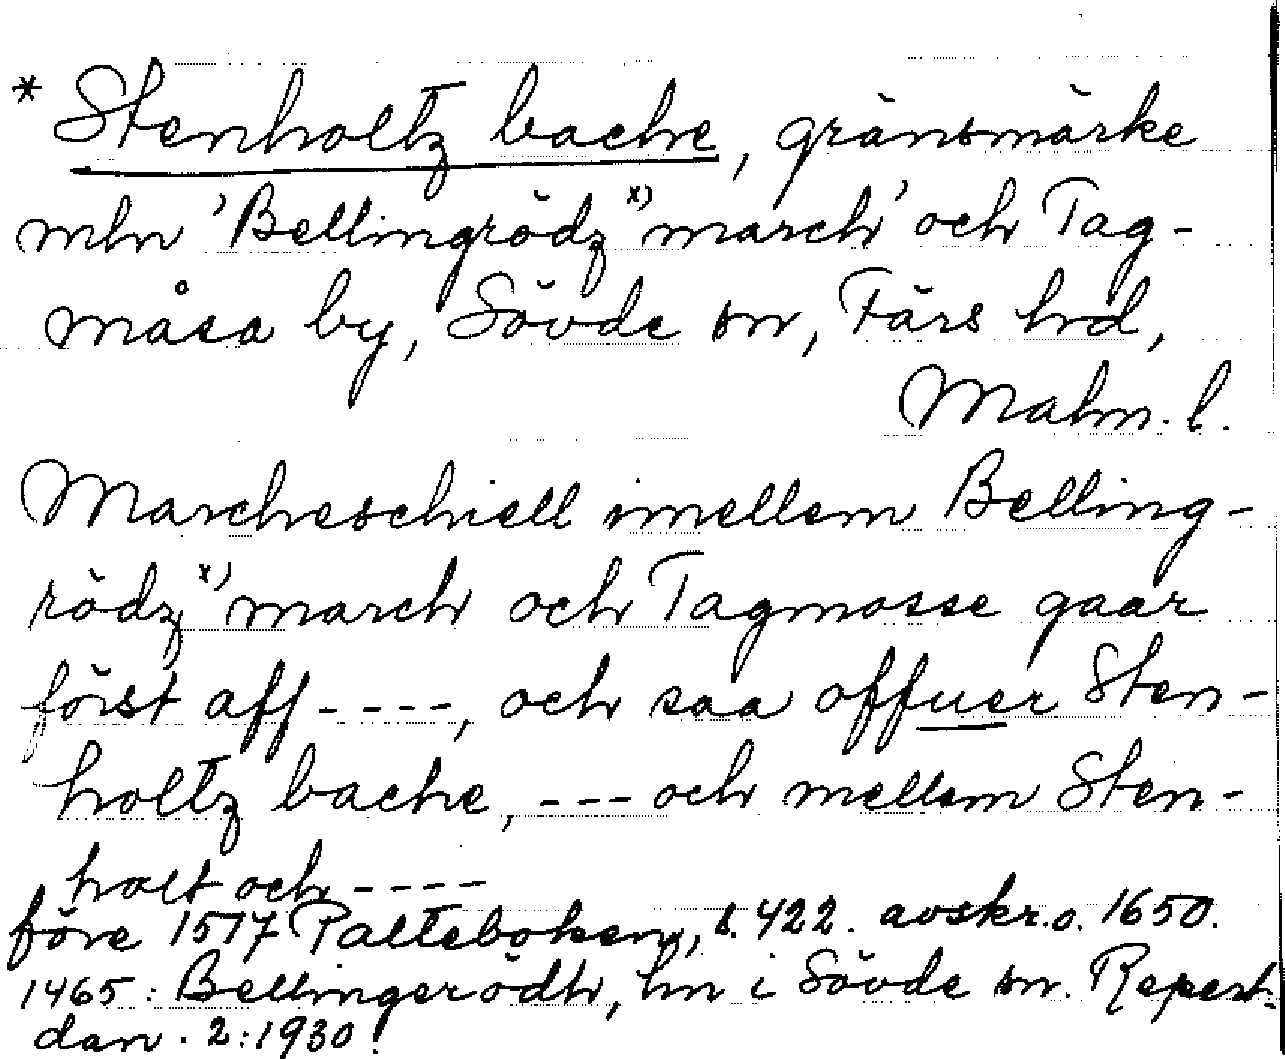 * Stenholtz bache, gränsmärke
mln 'Bellingrödz x) march' och Tag-
måsa by, Sövde sn, Färs hd,
Malm. l.
Marcheschiell imellem Belling-
rödz x) march och Tagmosse gaar
först aff ----, och saa offuer Sten-
holtz bache, --- och mellem Sten-
holt och ----
före 1517 Palteboken, s. 422. avskr. o. 1650.
1465: Bellingerödh, hn i Sövde sn. Repert.
dan. 2:1930.